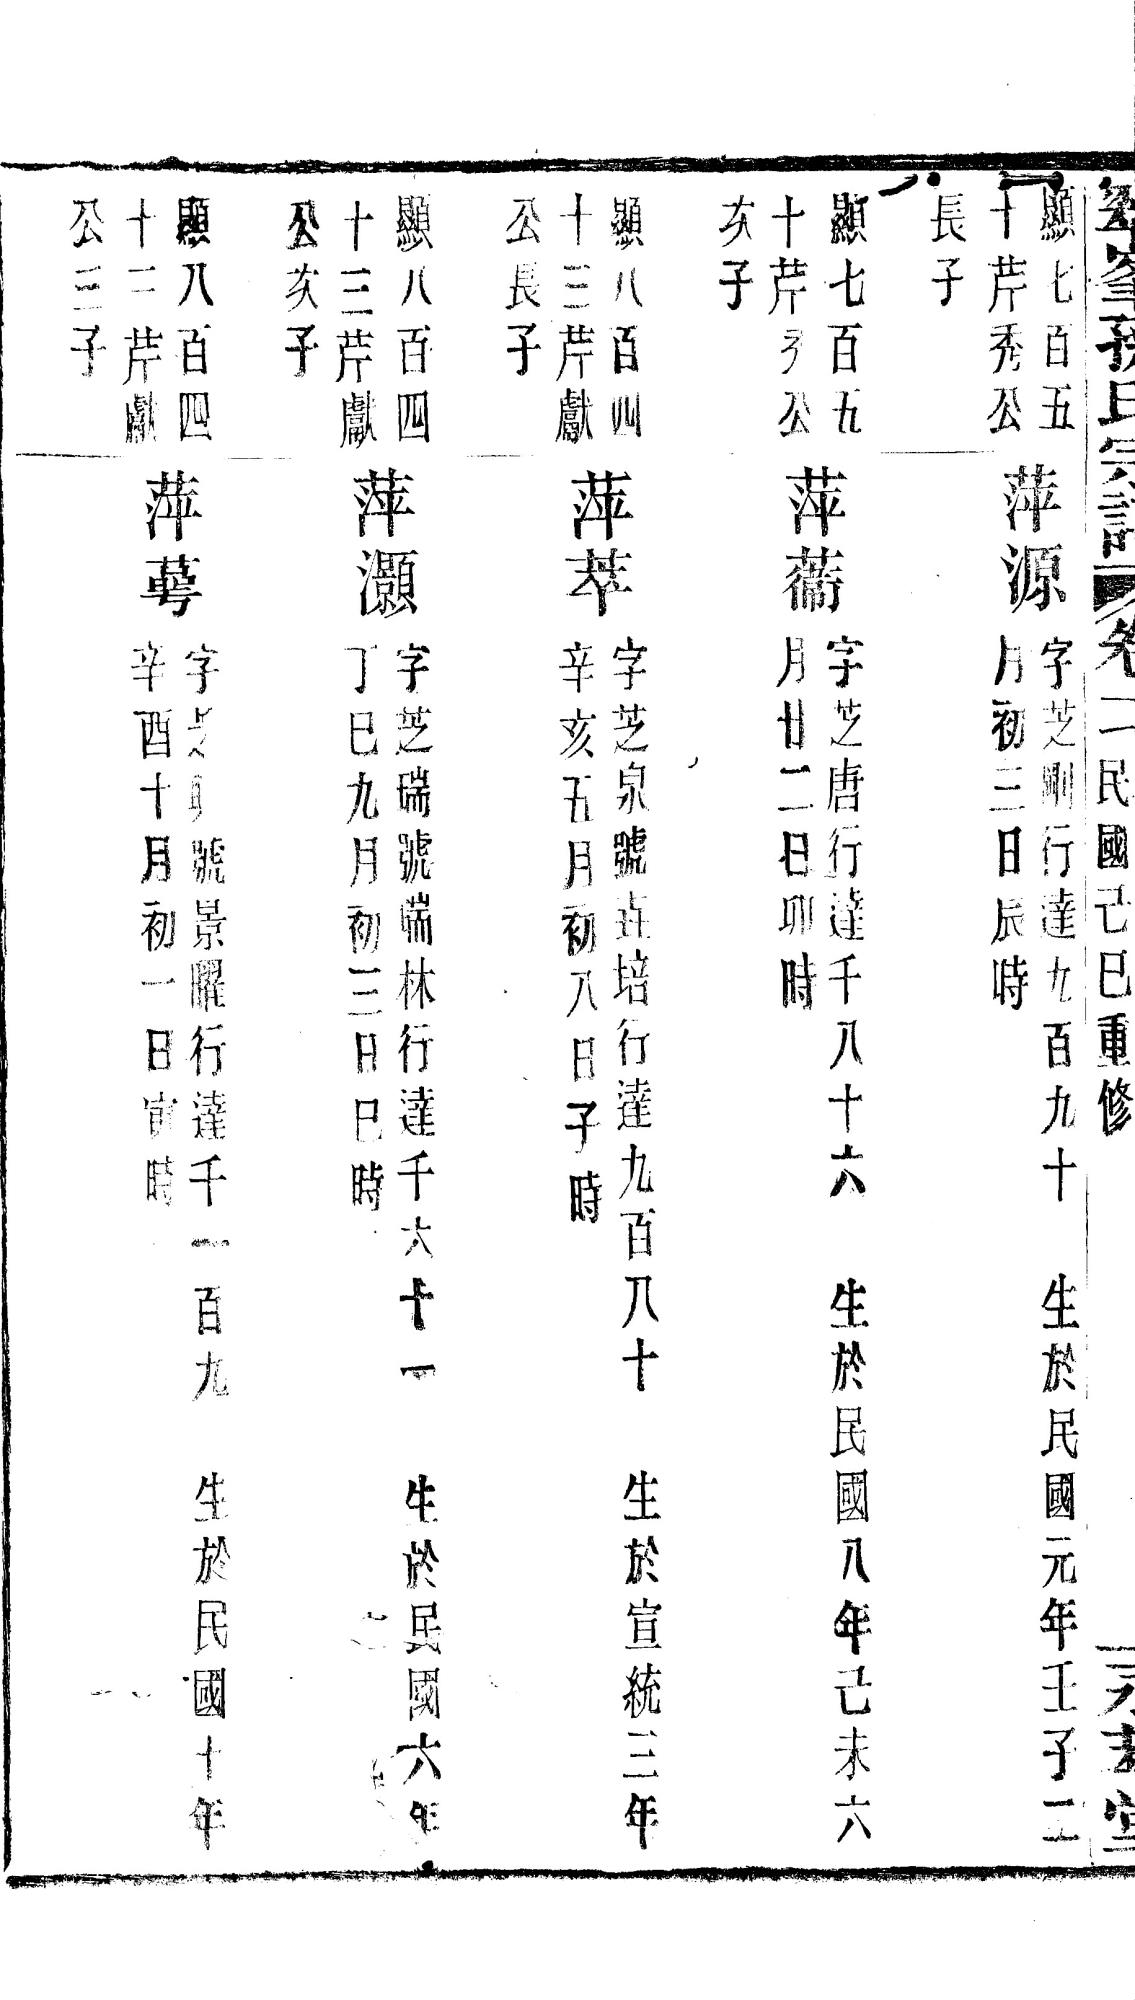 孫氏宗譜 卷二 民國己巳重修 堂
顯七百五
十芹秀公
長子
萍源
字芝剛行達九百九十 生於民國元年壬子二
月初三日辰時
顯七百五
十芹秀公
次子
萍薷
字芝唐行達千八十六 生於民國八年己未六
月廿二日卯時
顯八百四
十三芹獻
公長子
萍萃
字芝泉號垚培行達九百八十 生於宣統三年
辛亥五月初八日子時
顯八百四
十三芹獻
公次子
萍灝
字芝瑞號喘林行達千六十一 生於民國六年
丁巳九月初三日巳時
顯八百四
十三芹獻
公三子
萍萼
字芝 號景曜行達千一百九 生於民國十年
辛酉十月初一日寅時